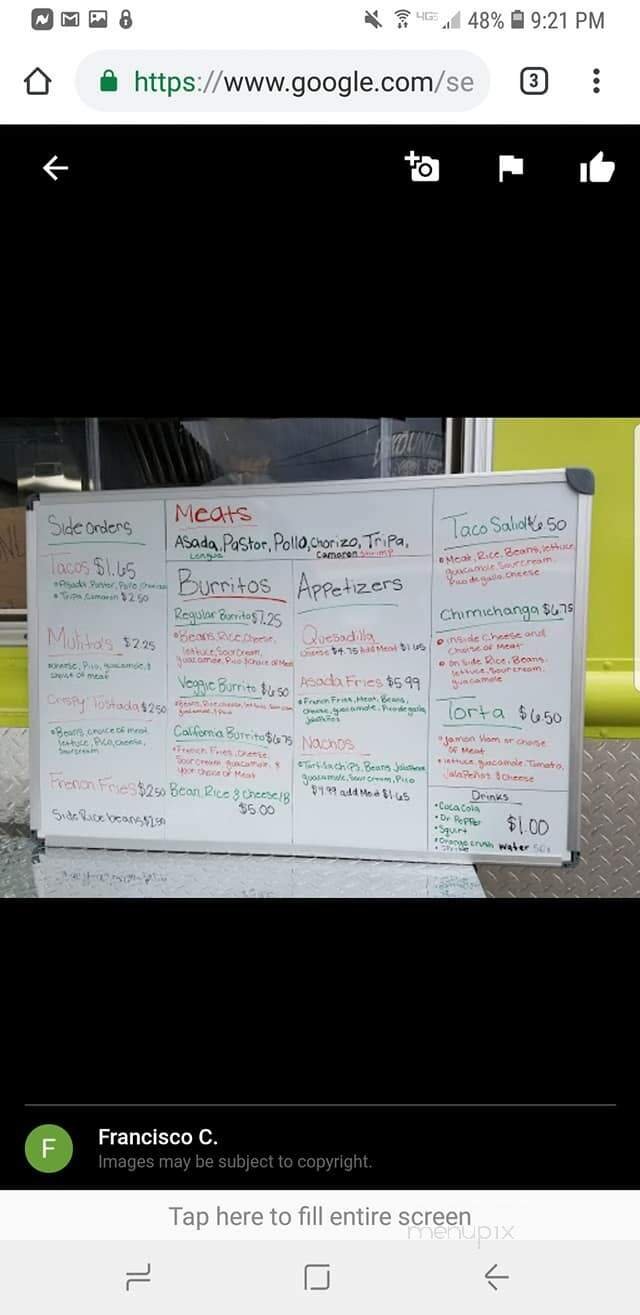 48% 9:21 PM
https://www.google.com/se
3
Side orders
Tacos $1.65
•Asada, Pastor, Pollo, Chorizo
• Tripa, Camaron $2.50
Mulita's $2.25
•cheese, Pico, guacamole, &
choice of meat
Crispy Tostada $2.50
•Beans, choice of meat,
lettuce, Pico, cheese,
Sour cream
French Fries $2.50
Side Rice beans $2.50
Meats
Asada, Pastor, Pollo, chorizo, Tripa,
Lengua Camaron shrimp
Burritos
Regular Burrito $7.25
•Beans, Rice, cheese,
lettuce, Sour Cream,
guacamole, Pico & choice of Meat
Veggie Burrito $6.50
California Burrito $6.75
•French Fries, cheese,
Sour cream guacamole, &
Your choice of Meat
Bean, Rice & cheese/B
$5.00
Appetizers
Quesadilla
cheese $4.75 Add Meat $1.65
Asada Fries $5.99
•French Fries, Meat, Beans,
cheese, guacamole, Pico de gallo,
Nachos
•Tortilla chips, Beans Jalapenos
guacamole, Sour cream, Pico
$4.99 add Meat $1.65
Taco Salad $6.50
•Meat, Rice, Beans, lettuce,
guacamole, Sour cream,
Pico de gallo, cheese
Chimichanga $6.75
inside cheese and
choise of Meat
on side Rice, Beans,
lettuce, Sour cream,
guacamole
Torta $6.50
•Jamon Ham or choise
of Meat
•lettuce, guacamole, Tomato,
Jalapeños & cheese
Drinks
•Coca Cola
•Dr. Pepper
•Squirt
•Orange crush
$1.00
Water 50¢
F
Francisco C.
Images may be subject to copyright.
Tap here to fill entire screen
menupix